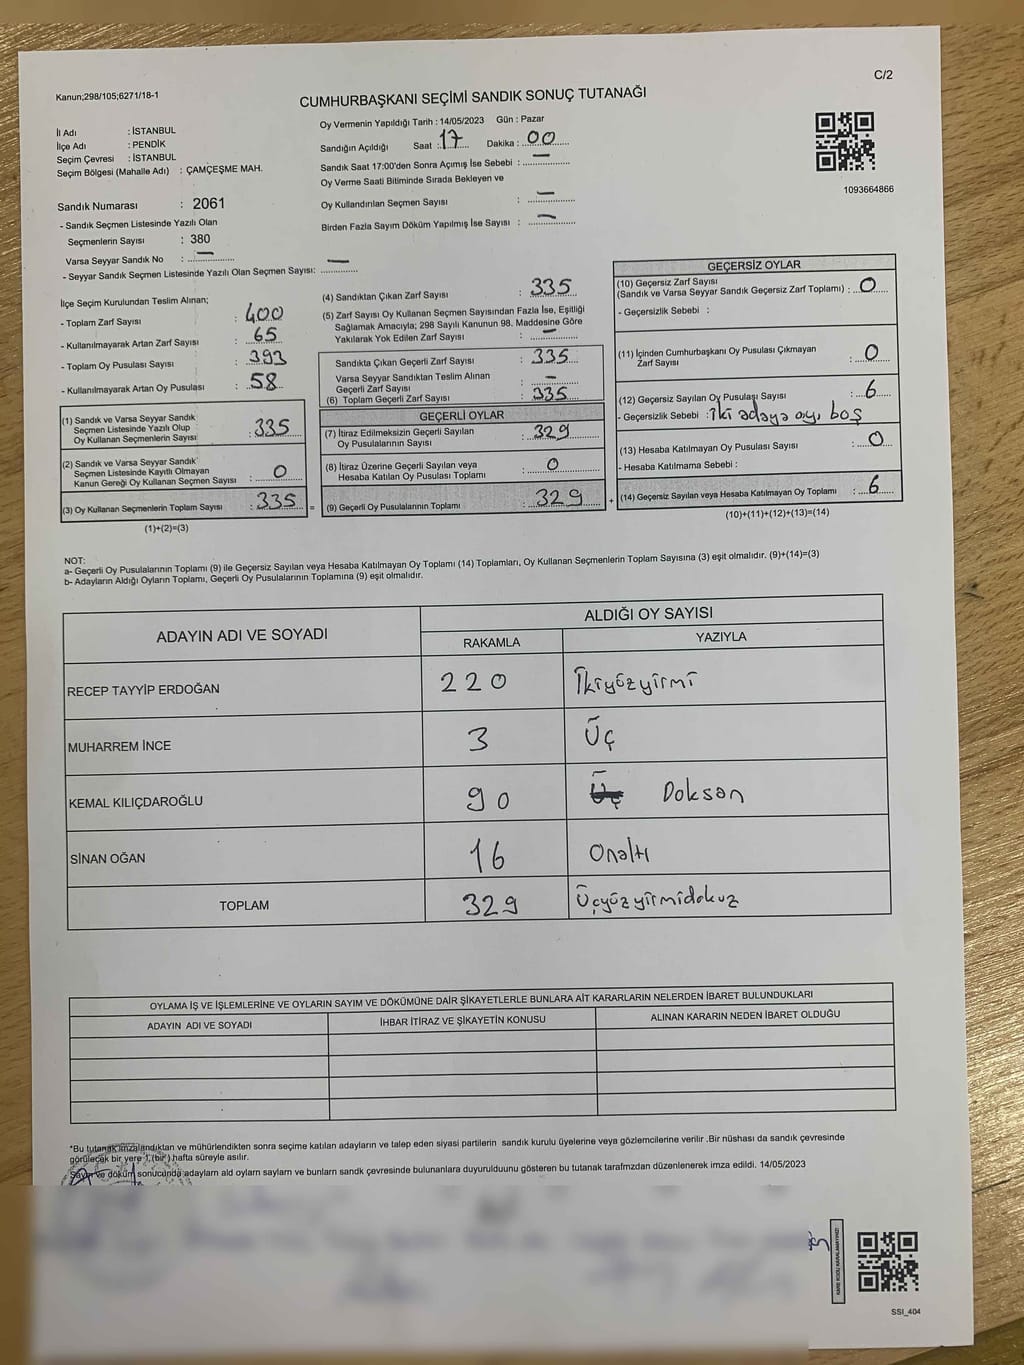 C/2
Kanun;298/105;6271/18-1
CUMHURBAŞKANI SEÇİMİ SANDIK SONUÇ TUTANAĞI
İl Adı : İSTANBUL
İlçe Adı : PENDİK
Seçim Çevresi : İSTANBUL
Seçim Bölgesi (Mahalle Adı) : ÇAMÇEŞME MAH.
Sandık Numarası : 2061
- Sandık Seçmen Listesinde Yazılı Olan
Seçmenlerin Sayısı : 380
Varsa Seyyar Sandık No : —
- Seyyar Sandık Seçmen Listesinde Yazılı Olan Seçmen Sayısı: —
Oy Vermenin Yapıldığı Tarih : 14/05/2023 Gün : Pazar
Sandığın Açıldığı Saat : 17 Dakika : 00
Sandık Saat 17:00'den Sonra Açımış İse Sebebi : —
Oy Verme Saati Bitiminde Sırada Bekleyen ve
Oy Kullandırılan Seçmen Sayısı : —
Birden Fazla Sayım Döküm Yapılmış İse Sayısı : —
1093664866
İlçe Seçim Kurulundan Teslim Alınan;
- Toplam Zarf Sayısı : 400
- Kullanılmayarak Artan Zarf Sayısı : 65
- Toplam Oy Pusulası Sayısı : 393
- Kullanılmayarak Artan Oy Pusulası : 58
(1) Sandık ve Varsa Seyyar Sandık
Seçmen Listesinde Yazılı Olup
Oy Kullanan Seçmenlerin Sayısı : 335
(2) Sandık ve Varsa Seyyar Sandık
Seçmen Listesinde Kayıtlı Olmayan
Kanun Gereği Oy Kullanan Seçmen Sayısı : 0
(3) Oy Kullanan Seçmenlerin Toplam Sayısı : 335 =
(1)+(2)=(3)
(4) Sandıktan Çıkan Zarf Sayısı : 335
(5) Zarf Sayısı Oy Kullanan Seçmen Sayısından Fazla İse, Eşitliği
Sağlamak Amacıyla; 298 Sayılı Kanunun 98. Maddesine Göre
Yakılarak Yok Edilen Zarf Sayısı : —
Sandıkta Çıkan Geçerli Zarf Sayısı : 335
Varsa Seyyar Sandıktan Teslim Alınan
Geçerli Zarf Sayısı : —
(6) Toplam Geçerli Zarf Sayısı : 335
GEÇERLİ OYLAR
(7) İtiraz Edilmeksizin Geçerli Sayılan
Oy Pusulalarının Sayısı : 329
(8) İtiraz Üzerine Geçerli Sayılan veya
Hesaba Katılan Oy Pusulası Toplamı : 0
(9) Geçerli Oy Pusulalarının Toplamı : 329 +
GEÇERSİZ OYLAR
(10) Geçersiz Zarf Sayısı
(Sandık ve Varsa Seyyar Sandık Geçersiz Zarf Toplamı) : 0
- Geçersizlik Sebebi :
(11) İçinden Cumhurbaşkanı Oy Pusulası Çıkmayan
Zarf Sayısı : 0
(12) Geçersiz Sayılan Oy Pusulası Sayısı : 6
- Geçersizlik Sebebi : İki adaya oy, boş
(13) Hesaba Katılmayan Oy Pusulası Sayısı : 0
- Hesaba Katılmama Sebebi :
(14) Geçersiz Sayılan veya Hesaba Katılmayan Oy Toplamı : 6
(10)+(11)+(12)+(13)=(14)
NOT:
a- Geçerli Oy Pusulalarının Toplamı (9) ile Geçersiz Sayılan veya Hesaba Katılmayan Oy Toplamı (14) Toplamları, Oy Kullanan Seçmenlerin Toplam Sayısına (3) eşit olmalıdır. (9)+(14)=(3)
b- Adayların Aldığı Oyların Toplamı, Geçerli Oy Pusulalarının Toplamına (9) eşit olmalıdır.
ADAYIN ADI VE SOYADI ALDIĞI OY SAYISI
RAKAMLA YAZIYLA
RECEP TAYYİP ERDOĞAN 220 İkiyüzyirmi
MUHARREM İNCE 3 Üç
KEMAL KILIÇDAROĞLU 90 Üç Doksan
SİNAN OĞAN 16 Onaltı
TOPLAM 329 Üçyüzyirmidokuz
OYLAMA İŞ VE İŞLEMLERİNE VE OYLARIN SAYIM VE DÖKÜMÜNE DAİR ŞİKAYETLERLE BUNLARA AİT KARARLARIN NELERDEN İBARET BULUNDUKLARI
ADAYIN ADI VE SOYADI İHBAR İTİRAZ VE ŞİKAYETİN KONUSU ALINAN KARARIN NEDEN İBARET OLDUĞU
*Bu tutanak imzalandıktan ve mühürlendikten sonra seçime katılan adayların ve talep eden siyasi partilerin sandık kurulu üyelerine veya gözlemcilerine verilir .Bir nüshası da sandık çevresinde
görülecek bir yere 1 (bir ) hafta süreyle asılır.
Sayım ve döküm sonucunda adaylarn ald oylarn saylarn ve bunlarn sandk çevresinde bulunanlara duyurulduunu gösteren bu tutanak tarafmzdan düzenlenerek imza edildi. 14/05/2023
KARE KODU KARALAMAYINIZ!
SSI_404